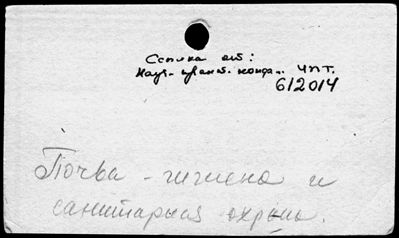 Ссылка см:
Науч. практ. конф. ЧПТ.
612014
Почва - гигиена и
санитарная охрана.